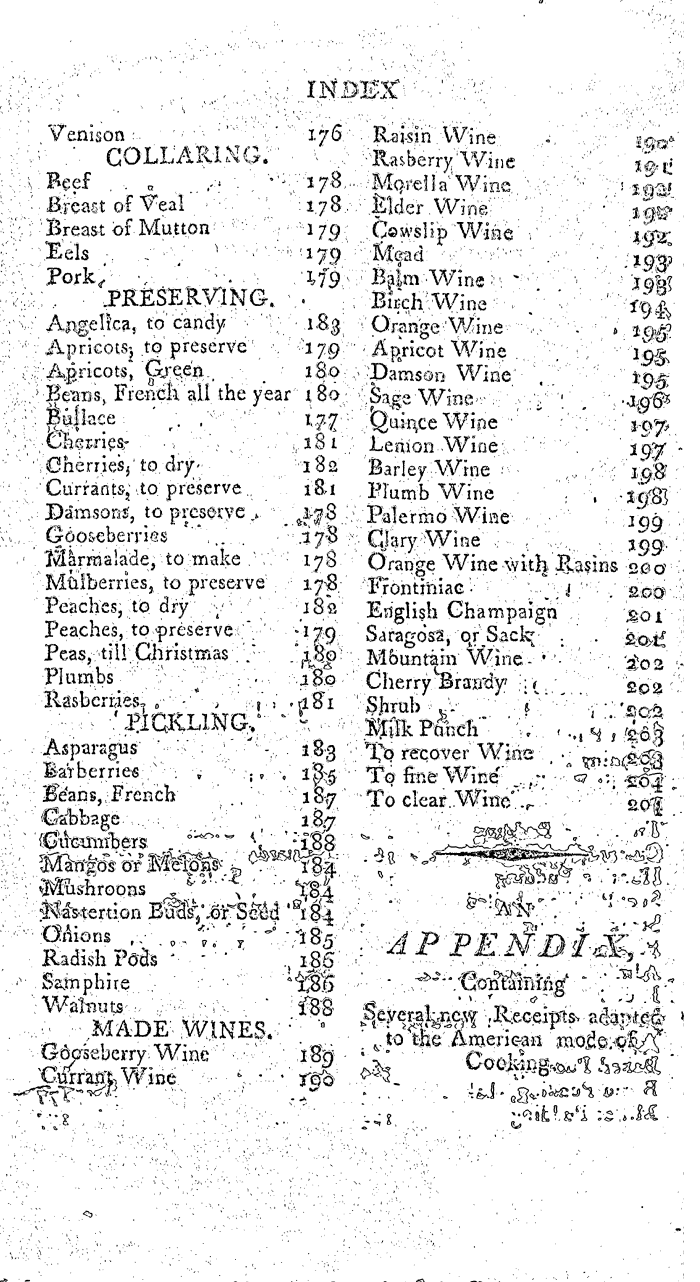 INDEX
Venison 176
COLLARING.
Beef 178
Breast of Veal 178
Breast of Mutton 179
Eels 179
Pork, 179
PRESERVING.
Angelica, to candy 183
Apricots, to preserve 179
Apricots, Green 180
Beans, French all the year 180
Bullace 177
Cherries 181
Cherries, to dry 182
Currants, to preserve 181
Damsons, to preserve 178
Gooseberries 178
Marmalade, to make 178
Mulberries, to preserve 178
Peaches, to dry 182
Peaches, to preserve 179
Peas, till Christmas 180
Plumbs 180
Rasberries, 181
PICKLING.
Asparagus 183
Barberries 185
Beans, French 187
Cabbage 187
Cucumbers 188
Mangos or Melons 184
Mushroons 184
Nastertion Buds, or Seed 184
Onions 185
Radish Pods 186
Samphire 186
Walnuts 188
MADE WINES.
Gooseberry Wine 189
Currant Wine 190
Raisin Wine 190
Rasberry Wine 191
Morella Wine
Elder Wine
Cowslip Wine 192
Mead 193
Balm Wine 193
Birch Wine 194
Orange Wine 195
Apricot Wine 195
Damson Wine 195
Sage Wine 196
Quince Wine 197
Lemon Wine 197
Barley Wine 198
Plumb Wine 198
Palermo Wine 199
Clary Wine 199
Orange Wine with Rasins 200
Frontiniac 200
English Champaign 201
Saragosa, or Sack 201
Mountain Wine 202
Cherry Brandy 202
Shrub 202
Milk Punch 203
To recover Wine 203
To fine Wine 204
To clear Wine 204
AN
APPENDIX,
Containing
Several new Receipts adapted
to the American mode of
Cooking